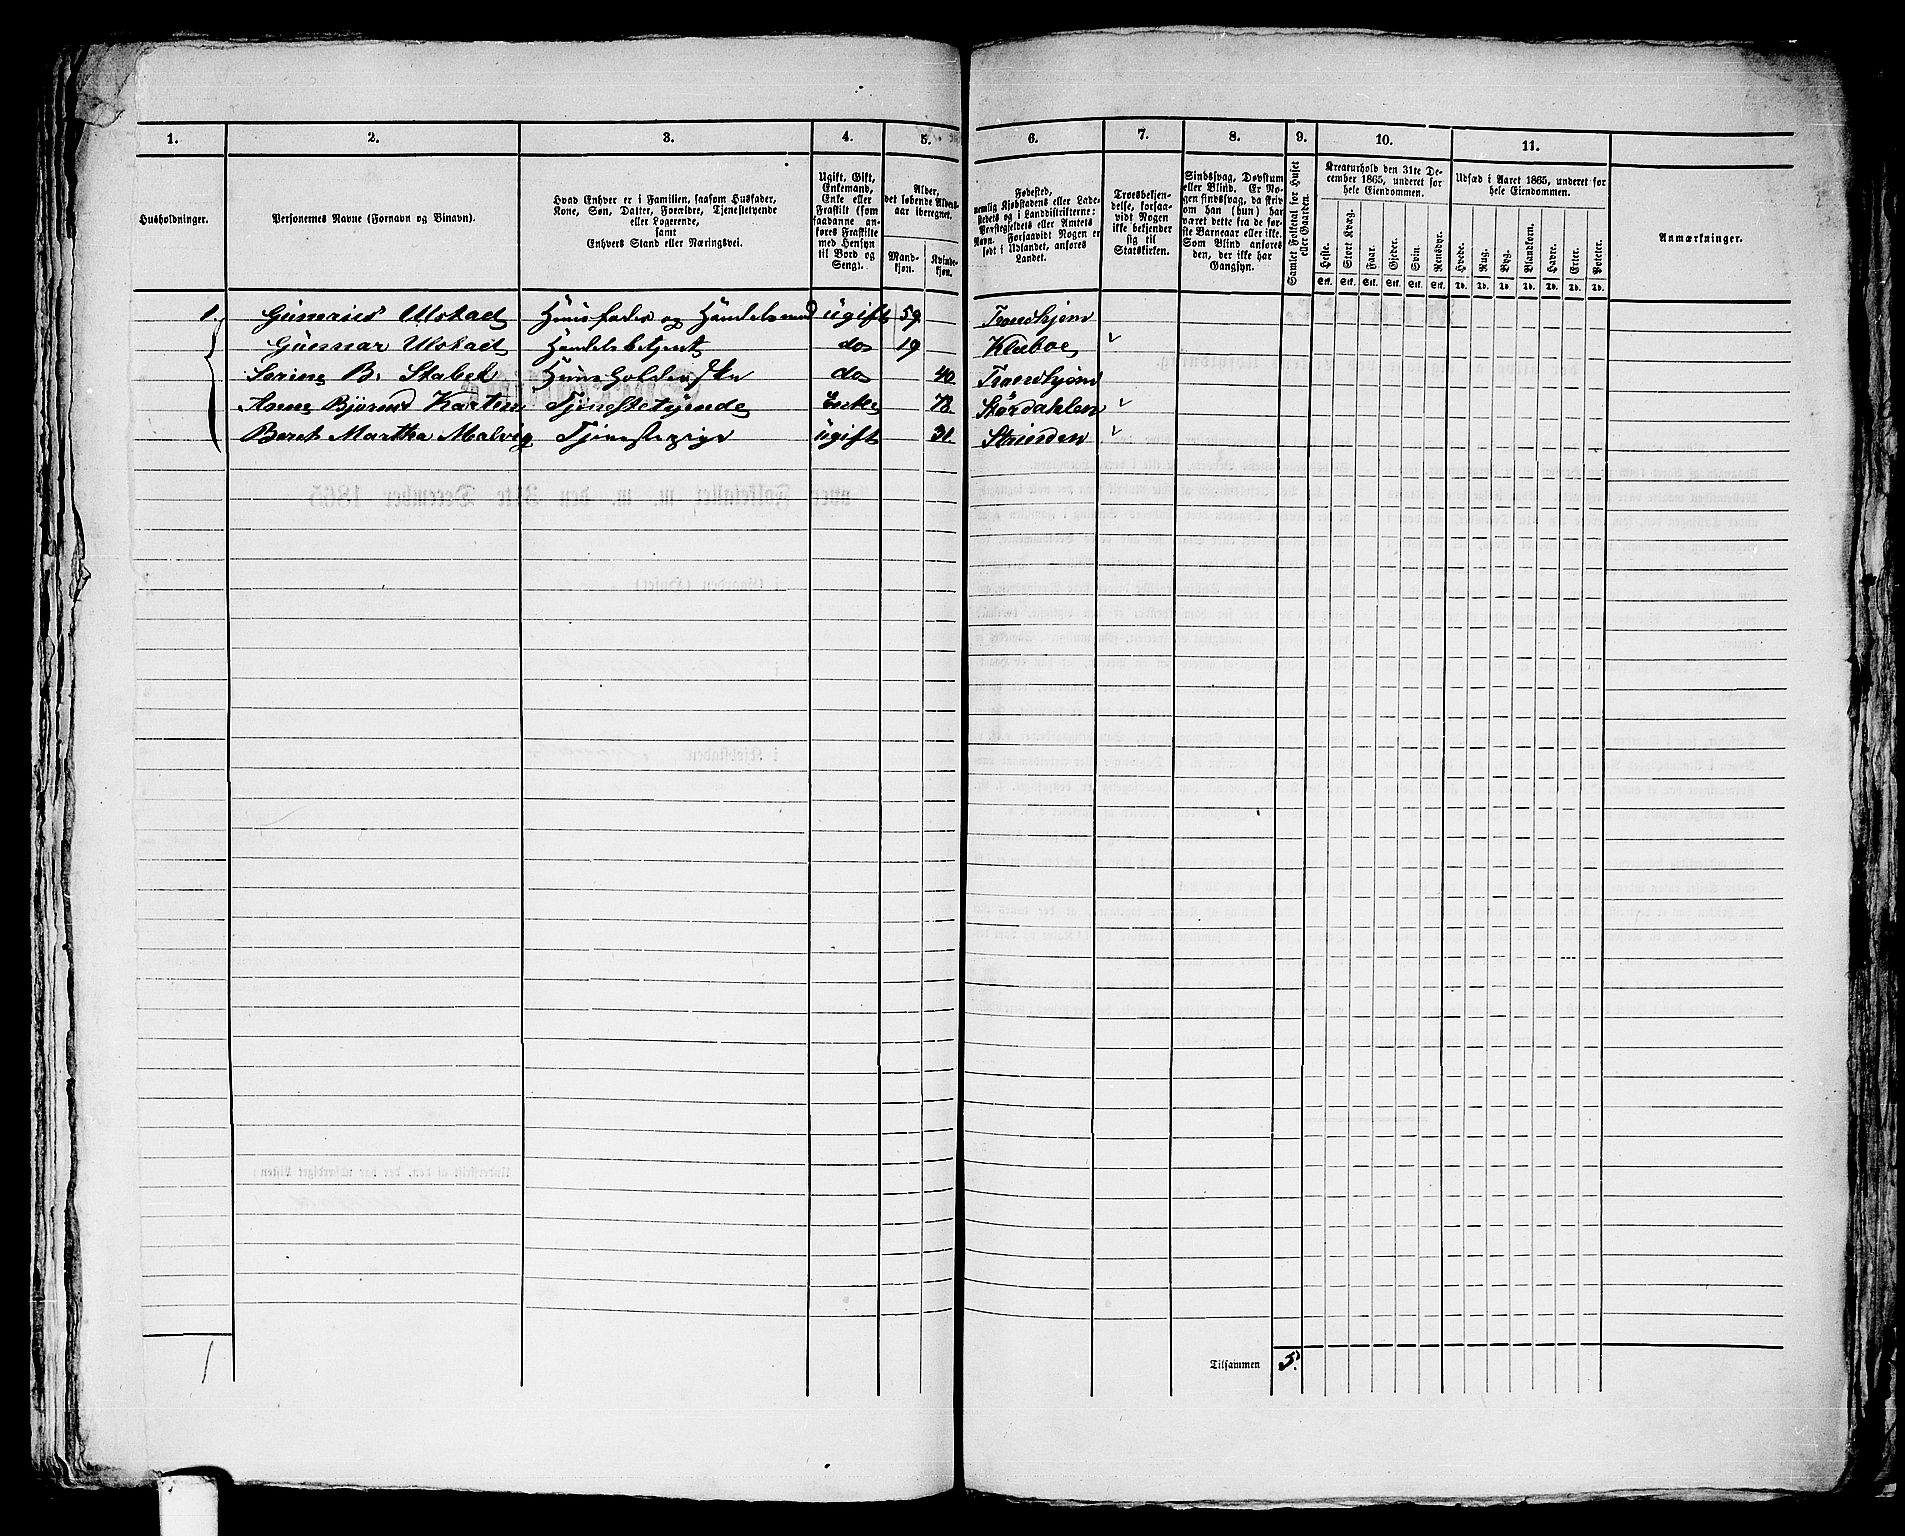 1. 2. 3. 4. 5. 6. 7. 8. 9. 10. 11.
Husholdninger.
Personernes Navne (Fornavn og Binavn).
Hvad Enhver er i Familien, saasom Husfader,
Kone, Søn, Datter, Forældre, Tjenestetyende
eller Logerende,
samt
Enhvers Stand eller Næringsvei.
Ugift, Gift,
Enkemand,
Enke eller
Fraskilt (som
saadanne an-
føres Fraskilte
med Hensyn
til Bord og
Seng).
Alder,
det løbende Alders-
aar iberegnet.
Mand-
kjøn.
Kvinde-
kjøn.
Fødested,
nemlig Kjøbstadens eller Lade-
stedets og i Landdistrikterne:
Præstegjeldets eller Amtets
Navn. Forsaavidt Nogen er
født i Udlandet, anføres
Landet.
Troesbekjen-
delse, forsaa-
vidt Nogen
ikke bekjender
sig til
Statskirken.
Sindssvag, Døvstum
eller Blind. Er No-
gen sindssvag, da skriv
om han (hun) har
været dette fra de før-
ste Barneaar eller ikke.
Som Blind anføres
den, der ikke har
Gangsyn.
Samlet Folketal for Huset
eller Gaarden.
Kreaturhold den 31te De-
cember 1865, underet for
hele Eiendommen.
Heste. Stort Kvæg. Faar. Gjeder. Svin. Rensdyr.
Stk. Stk. Stk. Stk. Stk. Stk.
Udsæd i Aaret 1865, underet for
hele Eiendommen.
Hvede. Rug. Byg. Blandkorn. Havre. Erter. Poteter.
Td. Td. Td. Td. Td. Td. Td.
Anmærkninger.
1. Gunerius Ulstad Huusfader og Handelsmand ugift 59 Trondhjem
Gunnar Ulstad Handelsbetjent do 19 Klæboe
Serine B. Stabek Huusholderske do 40 Trondhjem
Anne Bjørns Tjenestetyende Enke 78 Størdahlen
Beret Martha Malvig Tjenestepige ugift 31 Strinden
1
Tilsammen 5.